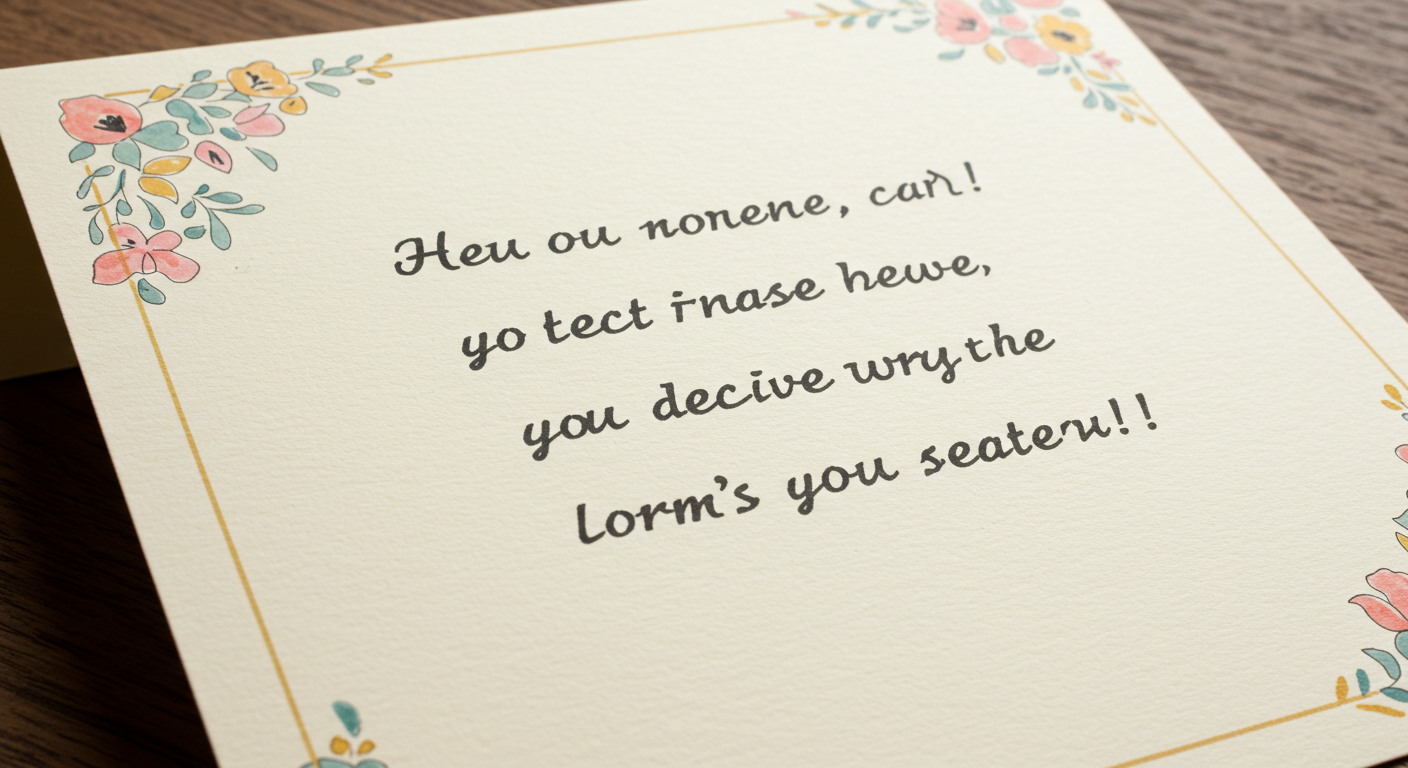 Heu ou nonene, carı!
yo tect i-nase hewe,
you decive wry the
lorm's you seateru!!